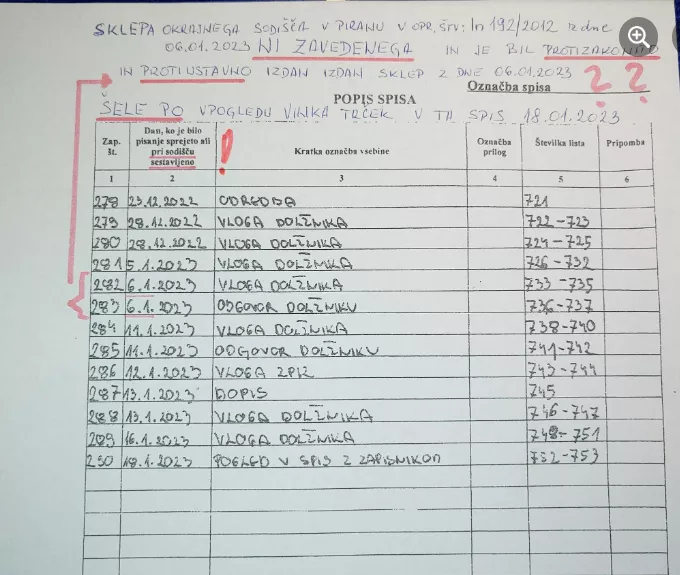 SKLEPA OKRAJNEGA SODIŠČA V PIRANU V OPR. ŠTV: In 192/2012 z dne
06.01.2023 NI ZAVEDENEGA IN JE BIL PROTIZAKONITO
IN PROTIUSTAVNO IZDAN IZDAN SKLEP Z DNE 06.01.2023 ? ?
Označba spisa
POPIS SPISA
ŠELE PO VPOGLEDU VINKA TRČEK V TA SPIS 18.01.2023
Zap. št. Dan, ko je bilo pisanje sprejeto ali pri sodišču sestavljeno ! Kratka označba vsebine Označba prilog Številka lista Pripomba
1 2 3 4 5 6
278 23.12.2022 ODREDBA 721
279 28.12.2022 VLOGA DOLŽNIKA 722-723
280 28.12.2022 VLOGA DOLŽNIKA 724-725
281 5.1.2023 VLOGA DOLŽNIKA 726-732
282 6.1.2023 VLOGA DOLŽNIKA 733-735
283 6.1.2023 ODGOVOR DOLŽNIKU 736-737
284 11.1.2023 VLOGA DOLŽNIKA 738-740
285 11.1.2023 ODGOVOR DOLŽNIKU 741-742
286 12.1.2023 VLOGA ZPIZ 743-744
287 13.1.2023 DOPIS 745
288 13.1.2023 VLOGA DOLŽNIKA 746-747
289 16.1.2023 VLOGA DOLŽNIKA 748-751
290 18.1.2023 POGLED V SPIS Z ZAPISNIKOM 752-753